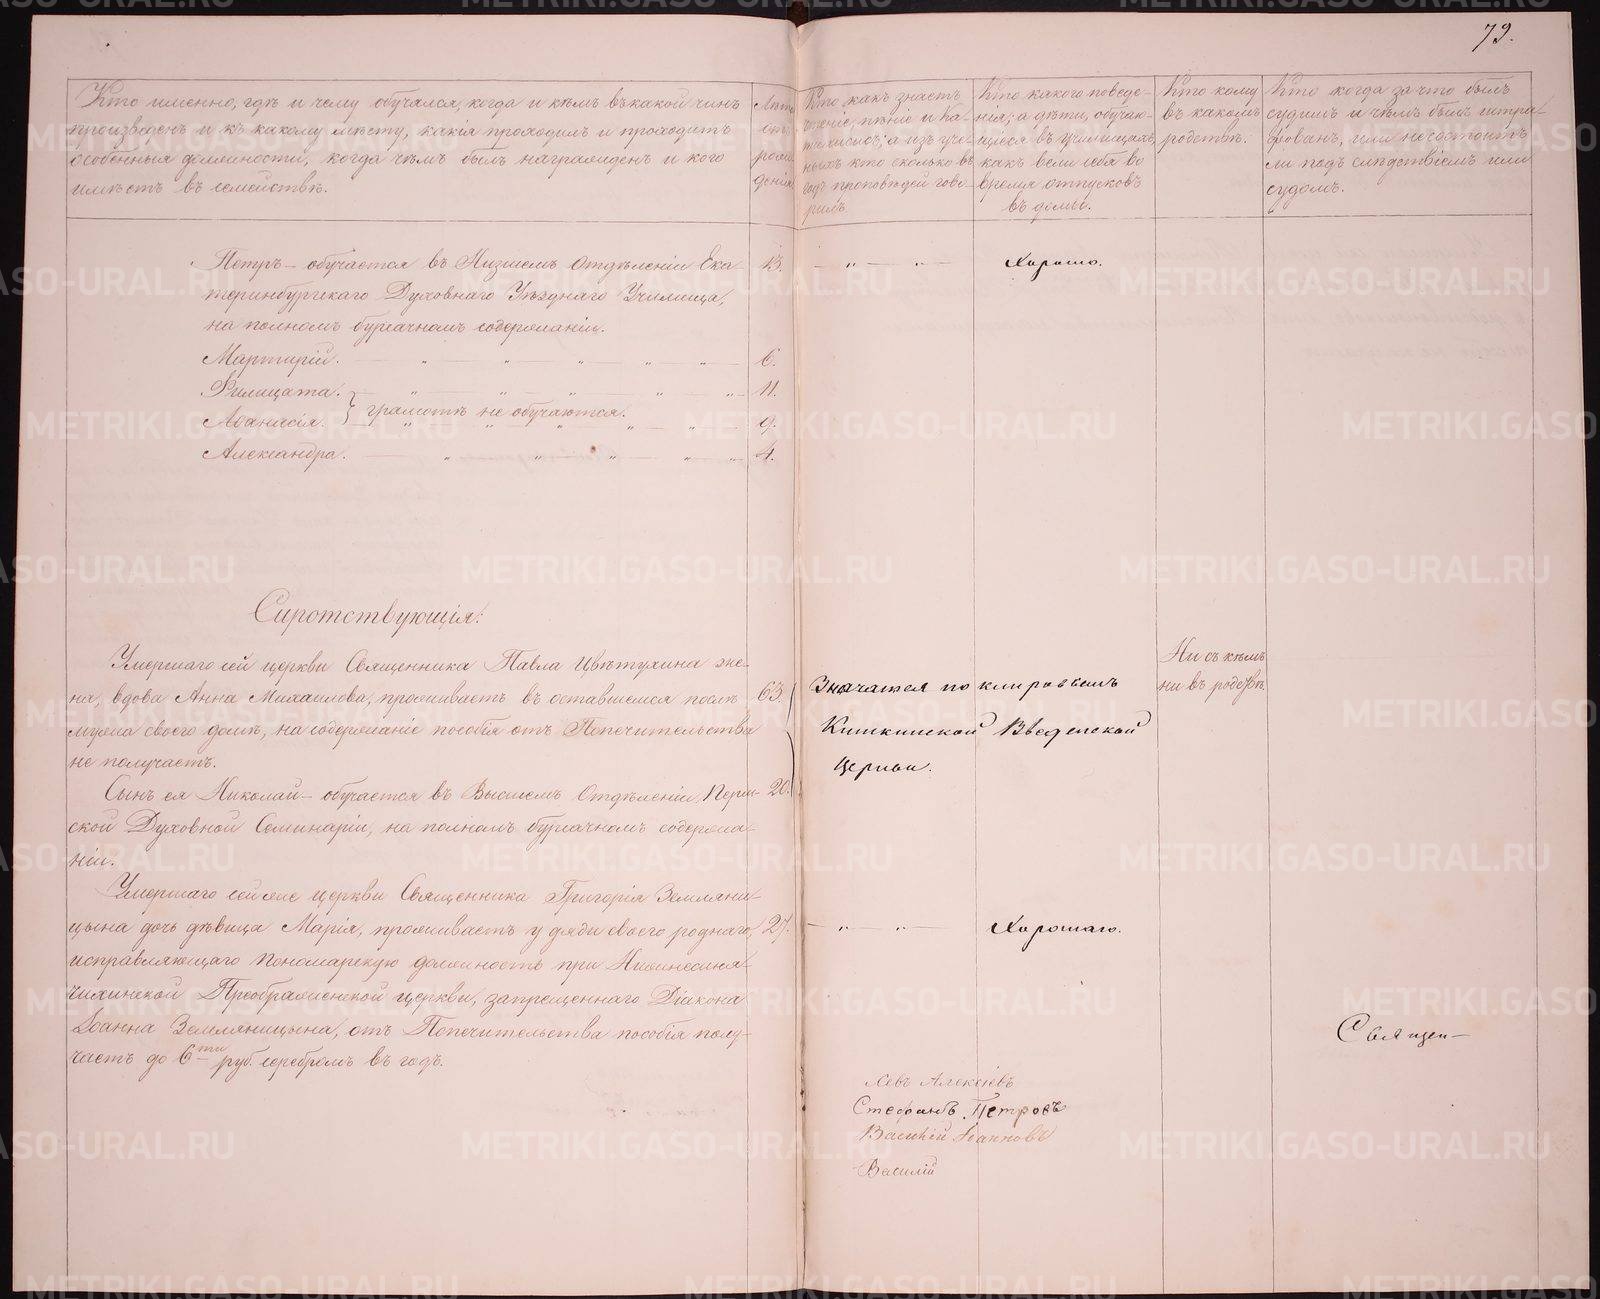 79.
Кто именно, гдѣ и чему обучался, когда и кѣмъ въ какой чинъ
произведенъ и къ какому мѣсту, какія проходилъ и проходитъ
особенныя должности, когда чѣмъ былъ награжденъ и кого
имѣетъ въ семействѣ.
Лѣта
отъ
рож
денія
Кто какъ знаетъ
чтеніе, пѣніе и ка
тихисисъ; а изъ уче
ныхъ кто сколько въ
годъ проповѣдей гово
рилъ.
Кто какого поведе-
нія; а дѣти, обучаю-
щіеся въ училищахъ,
какъ вели себя во
время отпусковъ
въ домы.
Кто кому
въ какомъ
родствѣ.
Кто когда за что былъ
судимъ и чѣмъ былъ штра-
фованъ, или не состоитъ
ли подъ слѣдствіемъ или
судомъ.
Петръ — обучается въ Низшемъ Отдѣленіи Ека- 13. — „ — „ — Хорошо.
теринбургскаго Духовнаго Уѣзднаго Училища,
на полномъ бурсачномъ содержаніи.
Мартирій. 6.
Филицата. 11.
грамотѣ не обучаются.
Аѳанасія. 9.
Александра. 4.
Сиротствующія:
Умершаго сей церкви Священника Павла Цвѣтухина же-
на, вдова Анна Михаилова, проживаетъ въ оставшемся послѣ 63.
мужа своего домѣ, на содержаніе пособія отъ Попечительства
не получаетъ.
Значатся по клировымъ
Кишкинской Введенской
Церкви.
Ни съ кѣмъ
ни въ родствѣ.
Сынъ ея Николай — обучается въ Высшемъ Отдѣленіи Перм- 20.
ской Духовной Семинаріи, на полномъ бурсачномъ содержа-
ніи.
Умершаго сей же церкви Священника Григорія Земляни-
цына дочь дѣвица Марія, проживаетъ у дяди своего роднаго, 27. — „ — „ — Хорошаго.
исправляющаго пономарскую должность при Нижнесиня-
чихинской Преображенской церкви, запрещеннаго Діакона
Іоанна Земляницына, отъ Попечительства пособія полу-
чаетъ до 6ти руб. серебромъ въ годъ.
Священ—
Левъ Алексѣевъ
Стефанъ Петровъ
Василій Іоанновъ
Василій